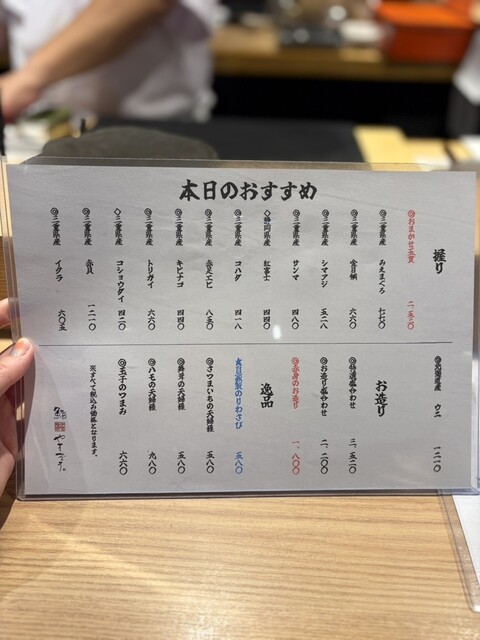 本日のおすすめ
握り
◎おまかせ五貫 二、五三〇
◎三重県産 みえまぐろ 七七〇
◎三重県産 金目鯛 六六〇
◎三重県産 シマアジ 五二八
◎三重県産 サンマ 四八〇
◇静岡県産 紅富士 四四〇
◎三重県産 コハダ 四一八
◎三重県産 赤足エビ 八五〇
◎三重県産 キビナゴ 四四〇
◎三重県産 トリガイ 六六〇
◇三重県産 コショウダイ 四二〇
◎三重県産 赤貝 一二一〇
◎三重県産 イクラ 六〇五
◎北海道産 ウニ 一二一〇
お造り
◎特選盛合わせ 三、五二〇
◎お造り盛合わせ 二、二〇〇
◎赤身のお造り 一、八〇〇
逸品
自家製のりわさび 五八〇
◎さつまいもの天婦羅 五八〇
◎舞茸の天婦羅 五八〇
◎ハモの天婦羅 九八〇
◎玉子のつまみ 六六〇
※すべて税込み価格となります。